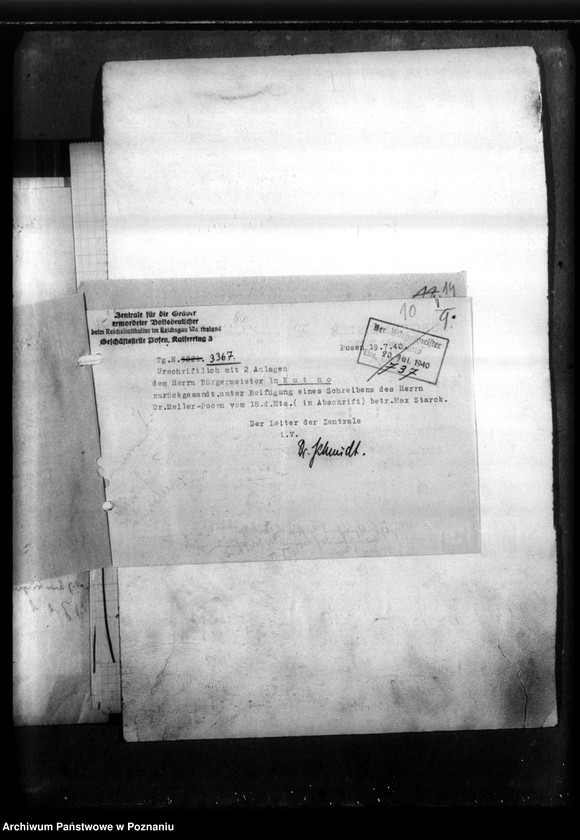 11. 14
10 9.
Zentrale für die Gräber
ermordeter Volksdeutscher
beim Reichsstatthalter im Reichsgau Wartheland
Geschäftsstelle Posen, Kaiserring 3
Der Bürgermeister
Posen 19.7.40
Eing. 20. Jul. 1940
737
Tg.N. 3367.
Urschriftlich mit 2 Anlagen
dem Herrn Bürgermeister in K u t n o
zurückgesandt.unter Beifügung eines Schreibens des Herrn
Dr.Meller-Posen vom 18.d.Mts.( in Abschrift) betr.Max Starck.
Der Leiter der Zentrale
i.V.
Dr. Schmidt.
Archiwum Państwowe w Poznaniu